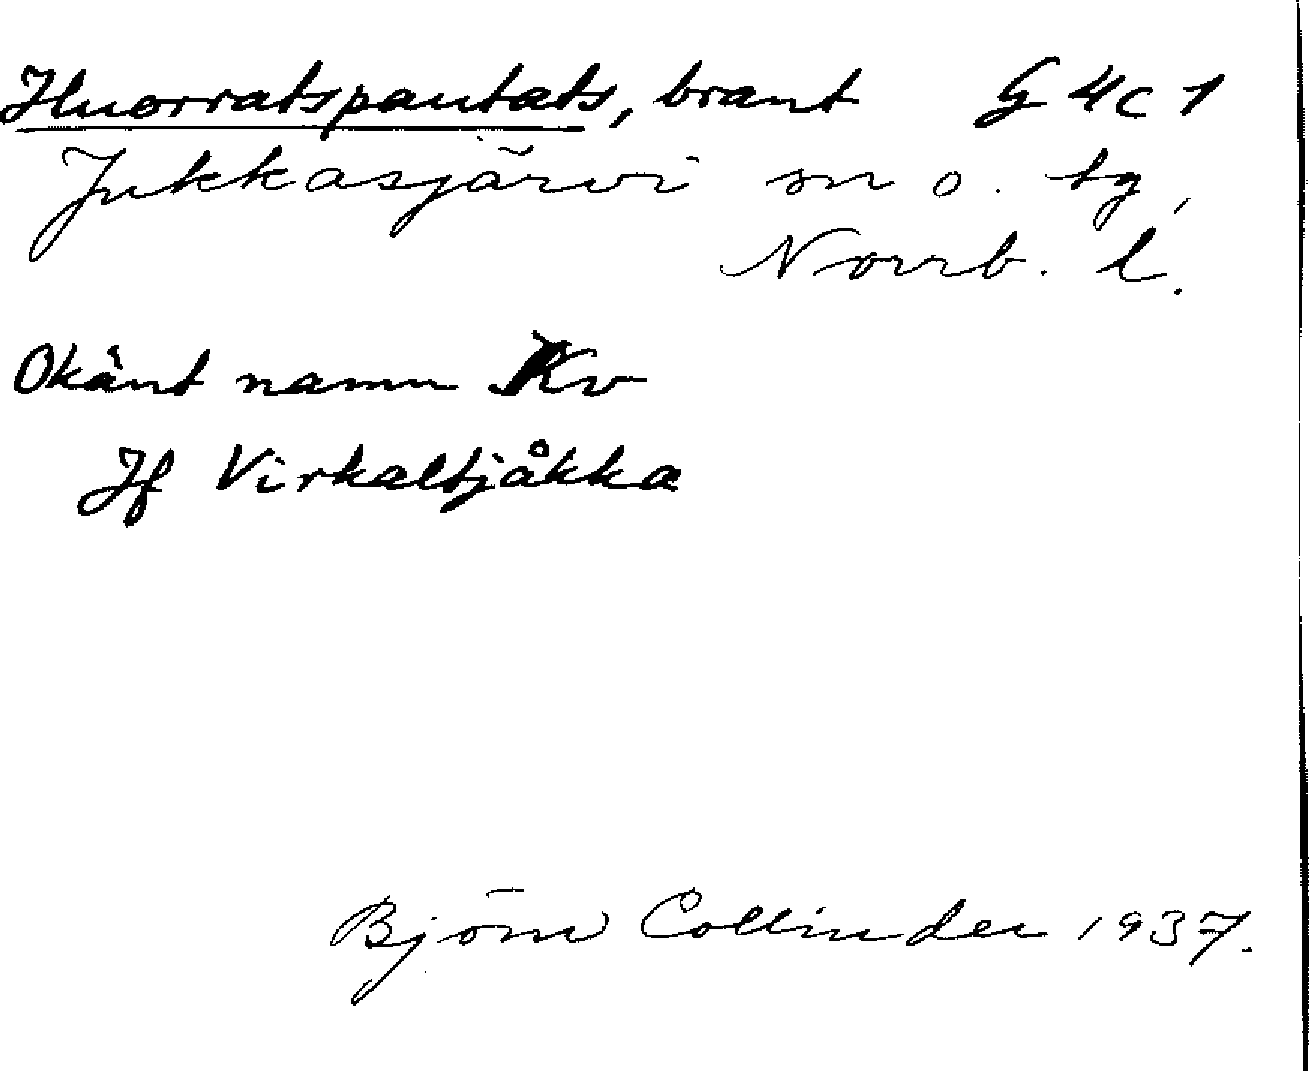 Huorratspautats, brant G 4c 1
Jukkasjärvi sn o. tg,
Norrb. l.
Okänt namn Kv
Jf Virkaltjåkka
Björn Collinder 1937.